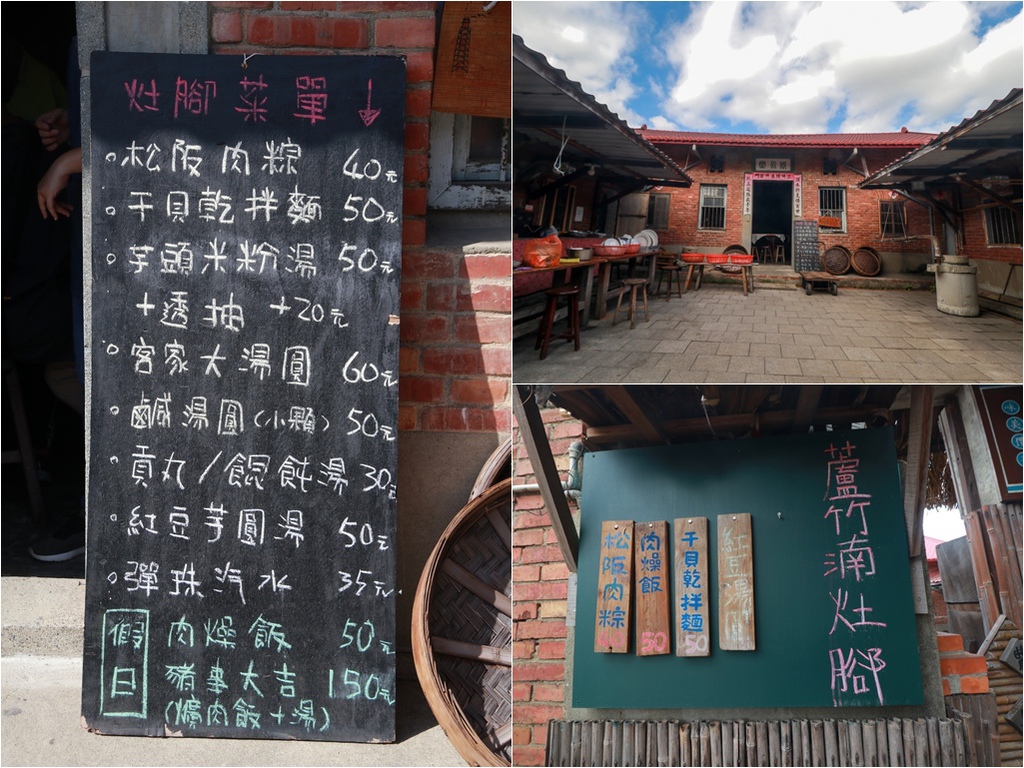 灶腳菜單↓
松阪肉粽 40元
干貝乾拌麵 50元
芋頭米粉湯 50元
+透抽 +20元
客家大湯圓 60元
鹹湯圓(小顆) 50元
貢丸/餛飩湯 30元
紅豆芋圓湯 50元
彈珠汽水 35元
假日
肉燥飯 50元
豬事大吉 150元
(爌肉飯+湯)
蘆竹湳灶腳
松阪肉粽
肉燥飯 50
干貝乾拌麵 50
紅豆湯圓